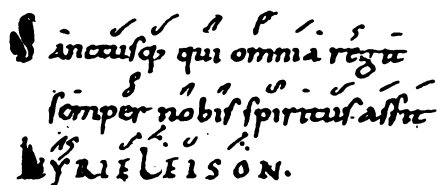 Sanctusq; qui omnia regit
semper nobis spiritus assit
KYRIELEISON.